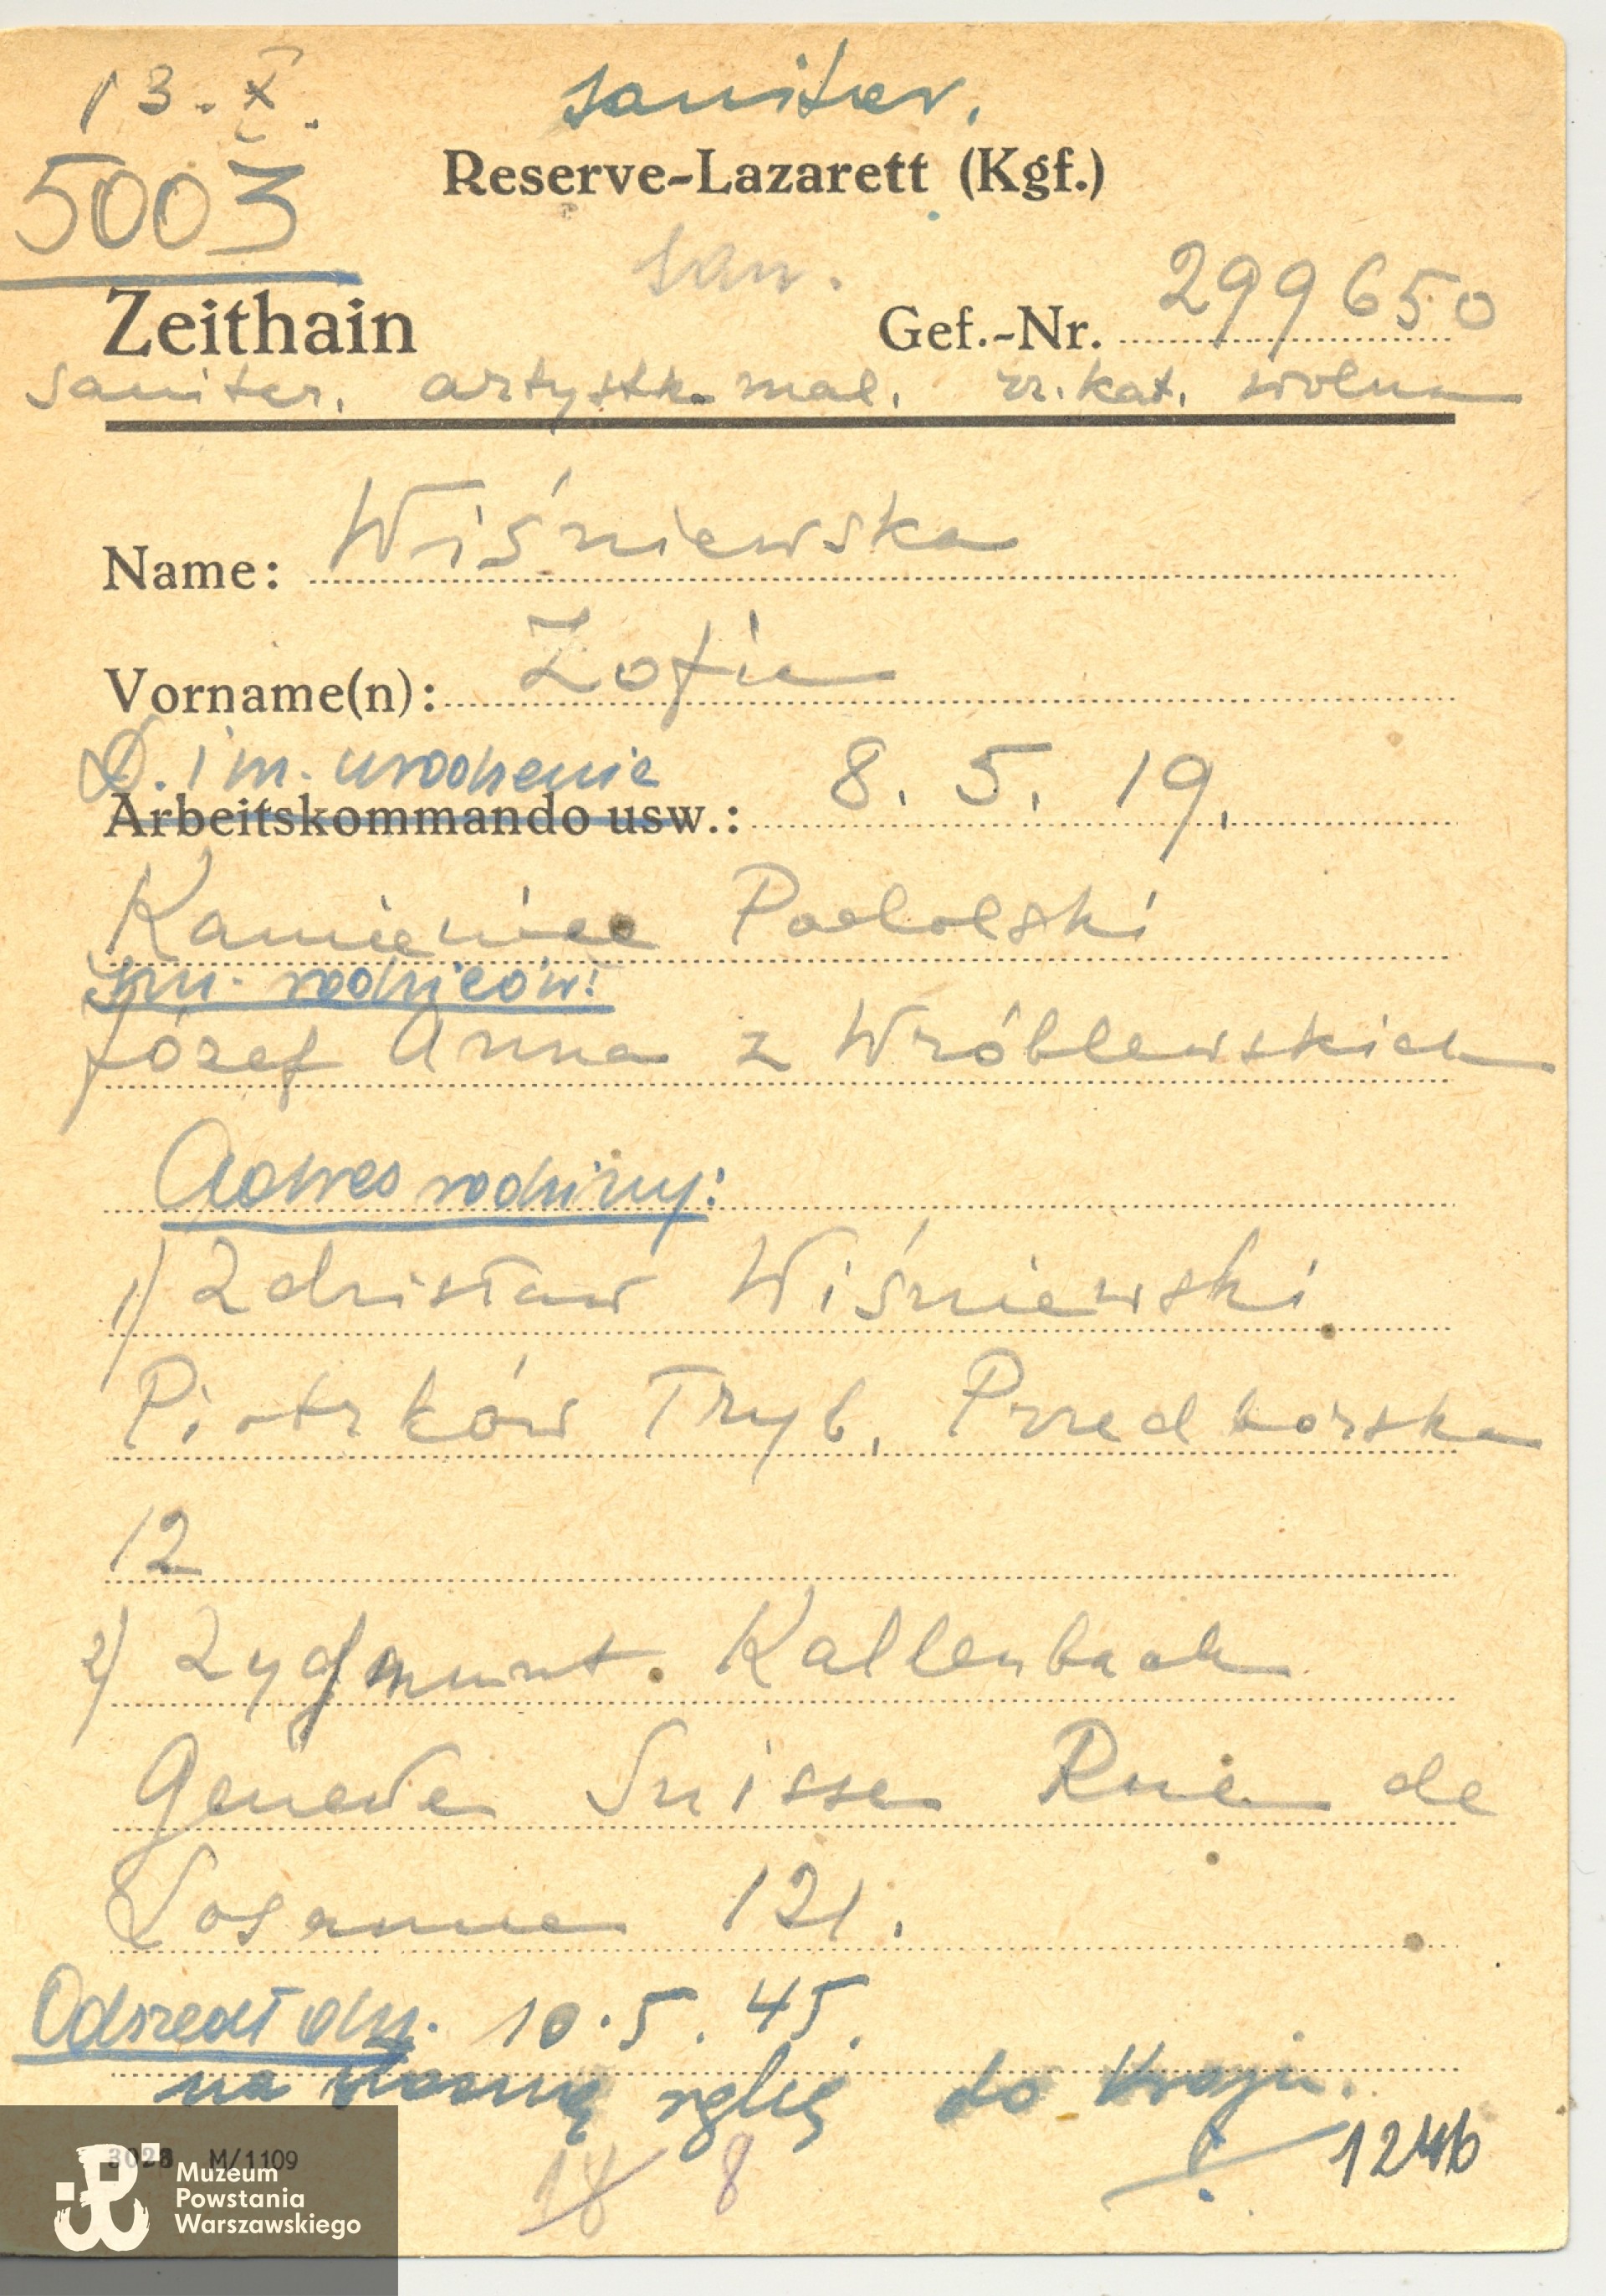 13. X.
saniter.
5003
Reserve-Lazarett (Kgf.)
san.
Zeithain
Gef.-Nr. 299650
saniter. artystk. mal. rz. kat. wolna
Name: Wiśniewska
Vorname(n): Zofia
D. i m. urodzenia
Arbeitskommando usw.: 8. 5. 19.
Kamieniec Podolski
Im. rodziców:
Józef Anna z Wróblewskich
Adres rodziny:
1) Zdzisław Wiśniewski
Piotrków Tryb. Przedborska
12
2) Zygmunt Kallenbach
Geneve Suisse Rue de
Losanne 121.
Odszedł dn. 10. 5. 45.
na własną rękę do Kraju.
1246
18 8
3028 M/1109
Muzeum
Powstania
Warszawskiego